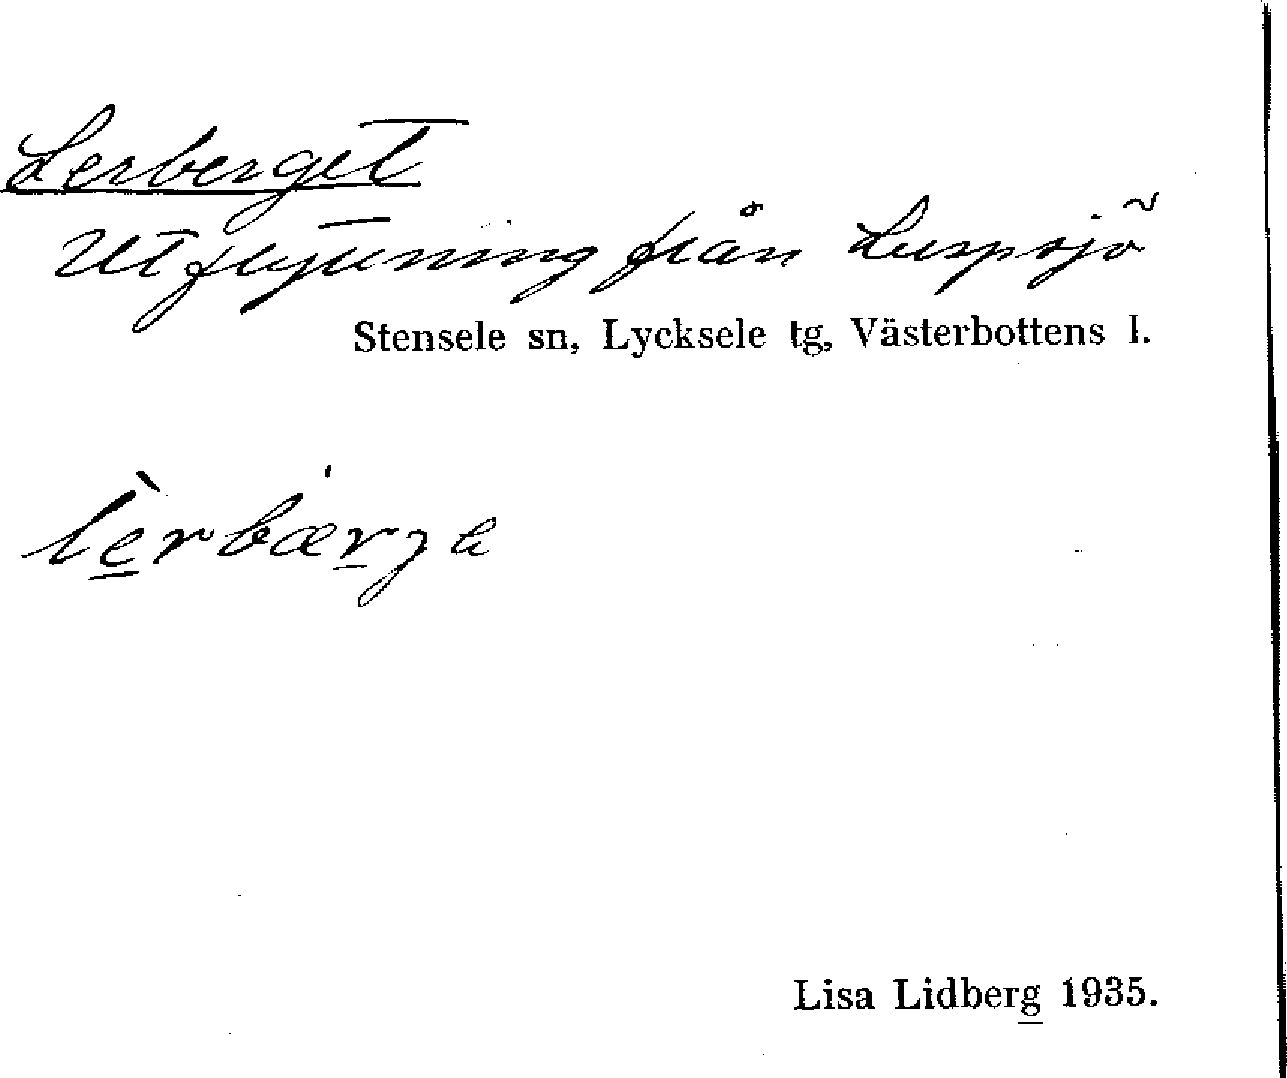 Lerberget
Utflyttning från Luspsjö
Stensele sn, Lycksele tg, Västerbottens l.
lèrbærje
Lisa Lidberg 1935.